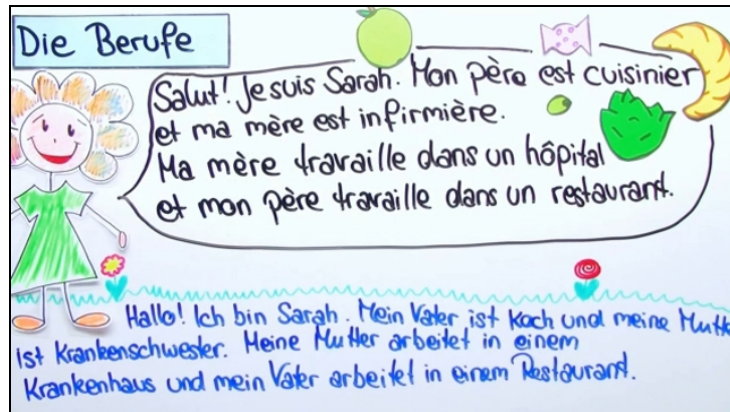 Die Berufe
Salut! Je suis Sarah. Mon père est cuisinier
et ma mère est infirmière.
Ma mère travaille dans un hôpital
et mon père travaille dans un restaurant.
Hallo! Ich bin Sarah. Mein Vater ist Koch und meine Mutter
ist Krankenschwester. Meine Mutter arbeitet in einem
Krankenhaus und mein Vater arbeitet in einem Restaurant.